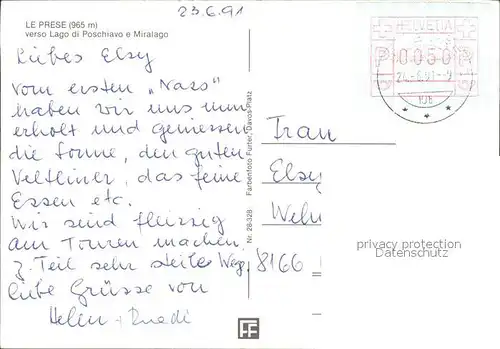 23.6.91
LE PRESE (965 m)
verso Lago di Poschiavo e Miralago
Liebes Elsy
vom ersten „Nass"
haben wir uns nun
erholt und geniessen
die Sonne, den guten
Veltliner, das feine
Essen etc.
Wir sind fleissig
am Touren machen.
z. Teil sehr steile Wege.
liebe Grüsse von
Helen + Ruedi
Nr. 28-328
Farbenfoto Furter, Davos-Platz
HELVETIA
P 0050 P
24.-6.91-9
Frau
Elsy
8166
privacy protection
Datenschutz
FF